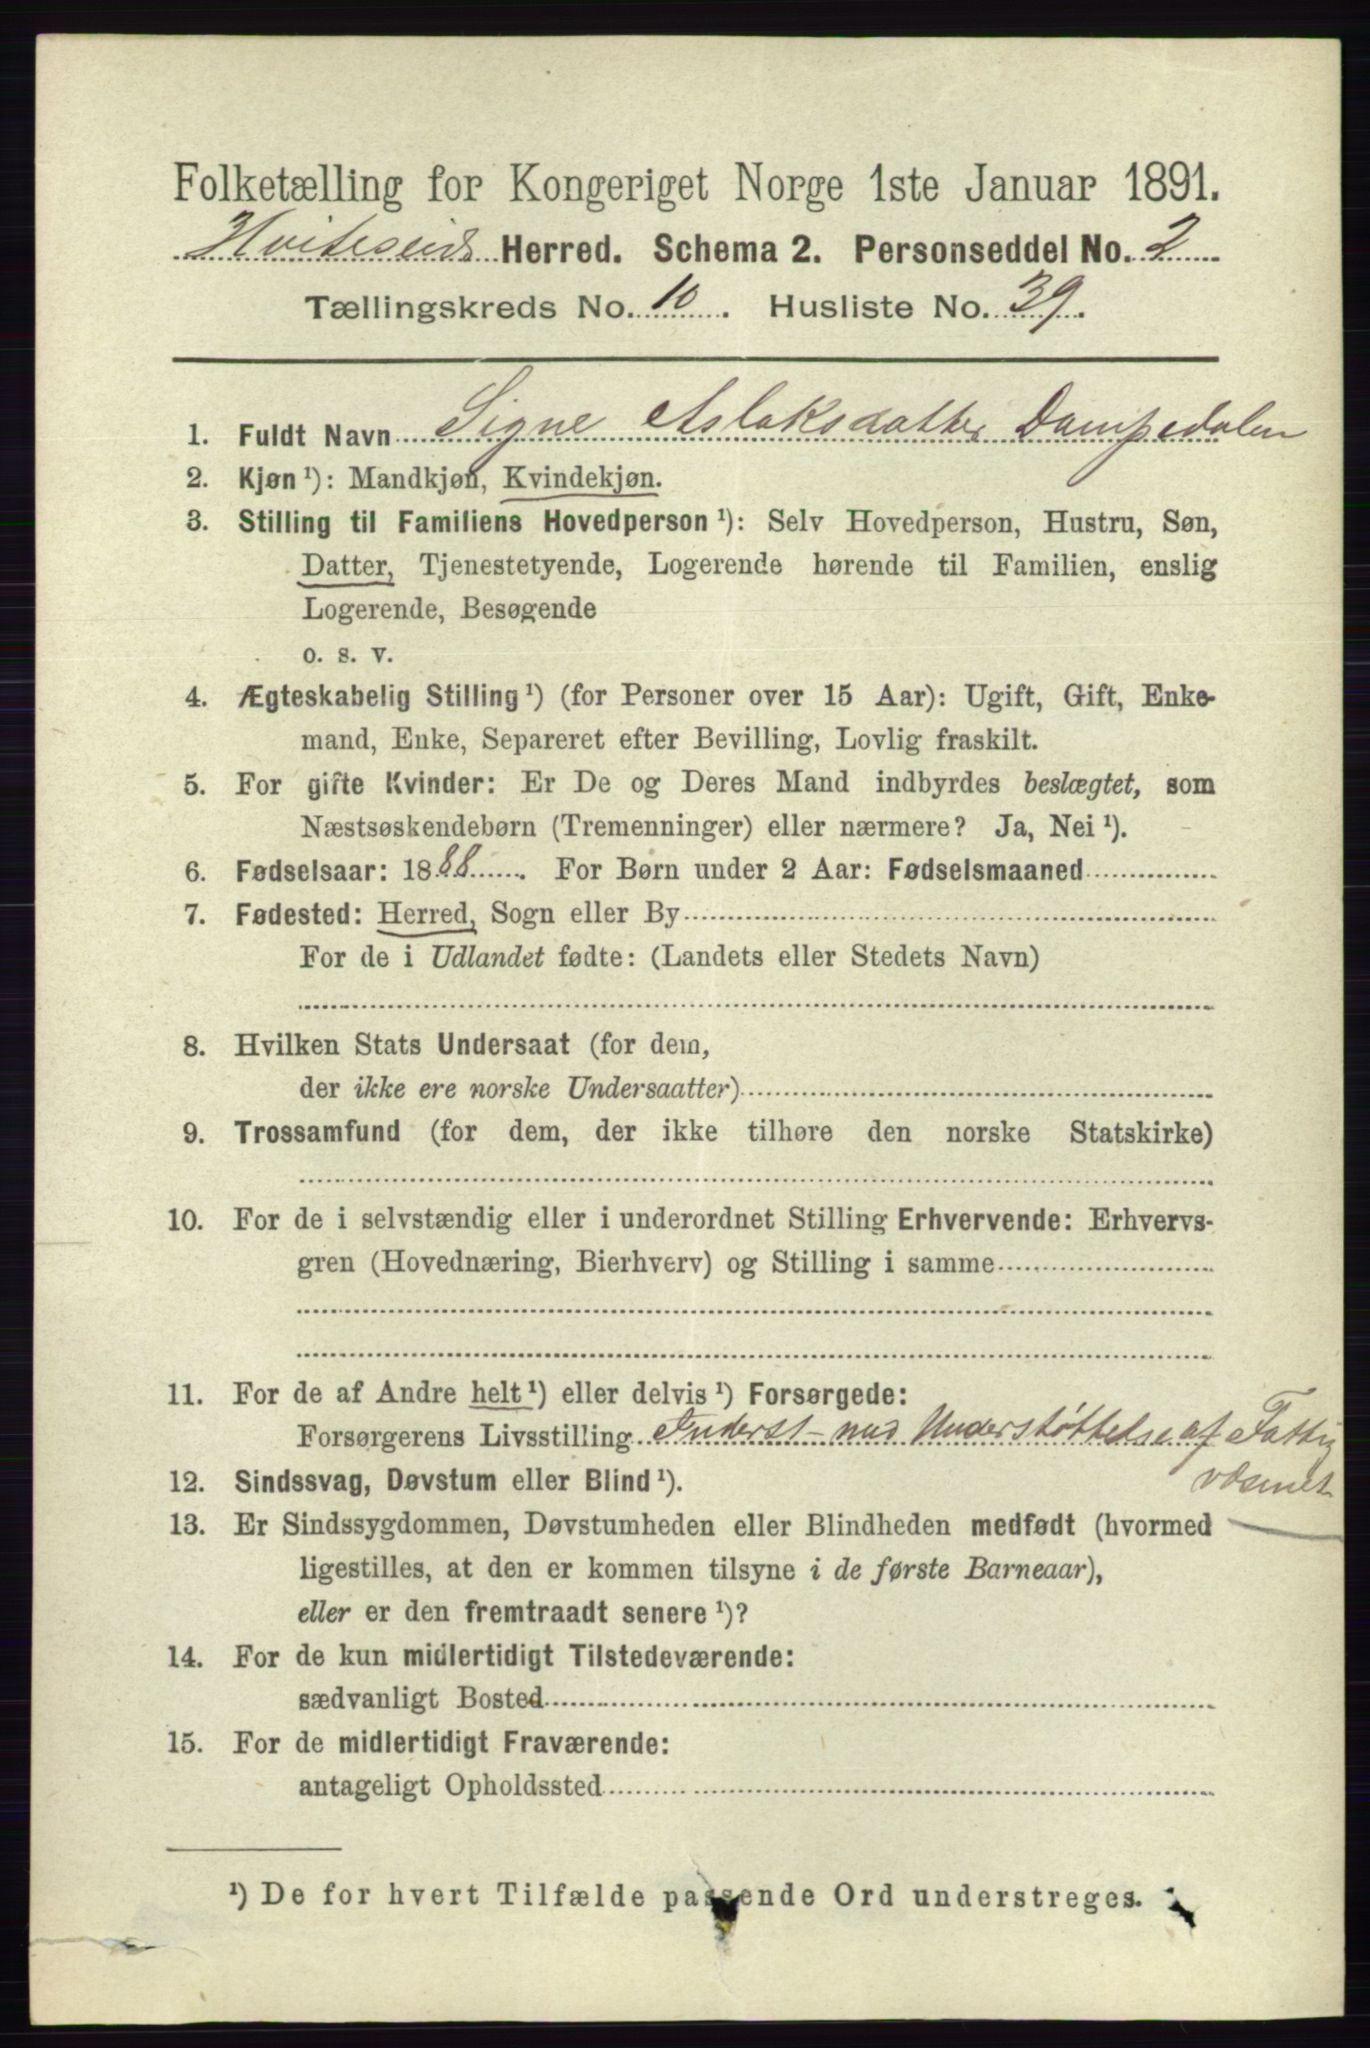 Folketælling for Kongeriget Norge 1ste Januar 1891.
Hviteseids Herred. Schema 2. Personseddel No. 2
Tællingskreds No. 10. Husliste No. 39.
1. Fuldt Navn Signe Aslaksdatter Dampedalen
2. Kjøn ¹): Mandkjøn, Kvindekjøn.
3. Stilling til Familiens Hovedperson ¹): Selv Hovedperson, Hustru, Søn,
Datter, Tjenestetyende, Logerende hørende til Familien, enslig
Logerende, Besøgende
o. s. v.
4. Ægteskabelig Stilling ¹) (for Personer over 15 Aar): Ugift, Gift, Enke-
mand, Enke, Separeret efter Bevilling, Lovlig fraskilt.
5. For gifte Kvinder: Er De og Deres Mand indbyrdes beslægtet, som
Næstsøskendebørn (Tremenninger) eller nærmere? Ja, Nei ¹).
6. Fødselsaar: 1888. For Børn under 2 Aar: Fødselsmaaned
7. Fødested: Herred, Sogn eller By
For de i Udlandet fødte: (Landets eller Stedets Navn)
8. Hvilken Stats Undersaat (for dem,
der ikke ere norske Undersaatter)
9. Trossamfund (for dem, der ikke tilhøre den norske Statskirke)
10. For de i selvstændig eller i underordnet Stilling Erhvervende: Erhvervs-
gren (Hovednæring, Bierhverv) og Stilling i samme
11. For de af Andre helt ¹) eller delvis ¹) Forsørgede:
Forsørgerens Livsstilling Inderst - med Understøttelse af Fattig
væsenet
12. Sindssvag, Døvstum eller Blind ¹).
13. Er Sindssygdommen, Døvstumheden eller Blindheden medfødt (hvormed
ligestilles, at den er kommen tilsyne i de første Barneaar),
eller er den fremtraadt senere ¹)?
14. For de kun midlertidigt Tilstedeværende:
sædvanligt Bosted
15. For de midlertidigt Fraværende:
antageligt Opholdssted
¹) De for hvert Tilfælde passende Ord understreges.